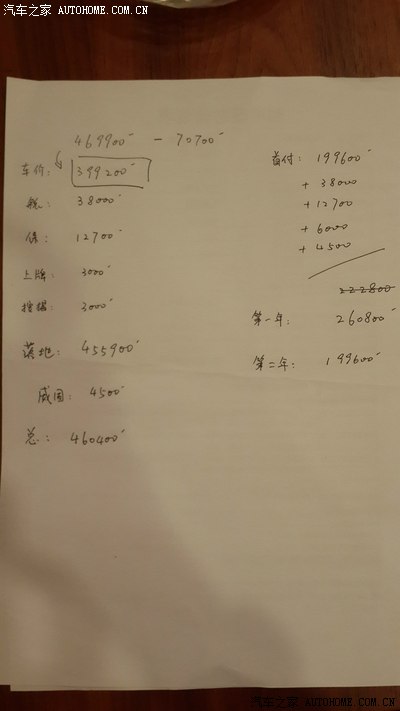 汽车之家 AUTOHOME.COM.CN
469900 - 70700
车价: 399200
税: 38000
保: 12700
上牌: 3000
按揭: 3000
落地: 455900
威固: 4500
总: 460400
首付: 199600
+ 38000
+ 12700
+ 6000
+ 4500
222800
第一年: 260800
第二年: 199600
汽车之家 AUTOHOME.COM.CN